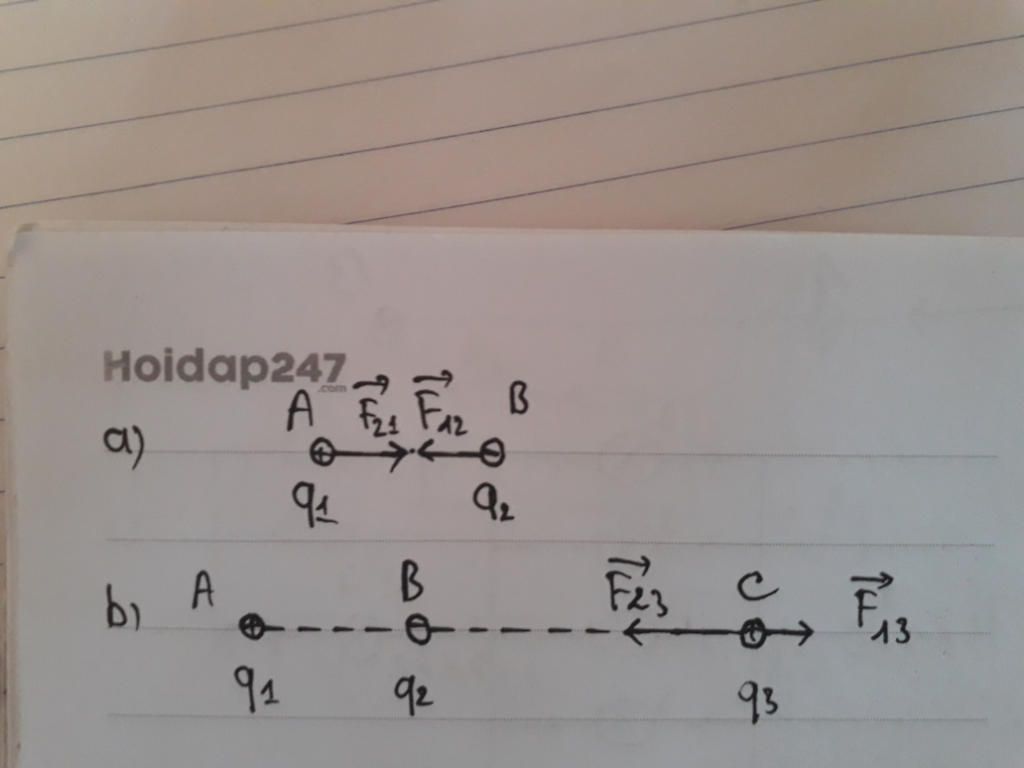 Hoidap247
.com
A F21 F12 B
a)
q1 q2
A B F23 C F13
b)
q1 q2 q3